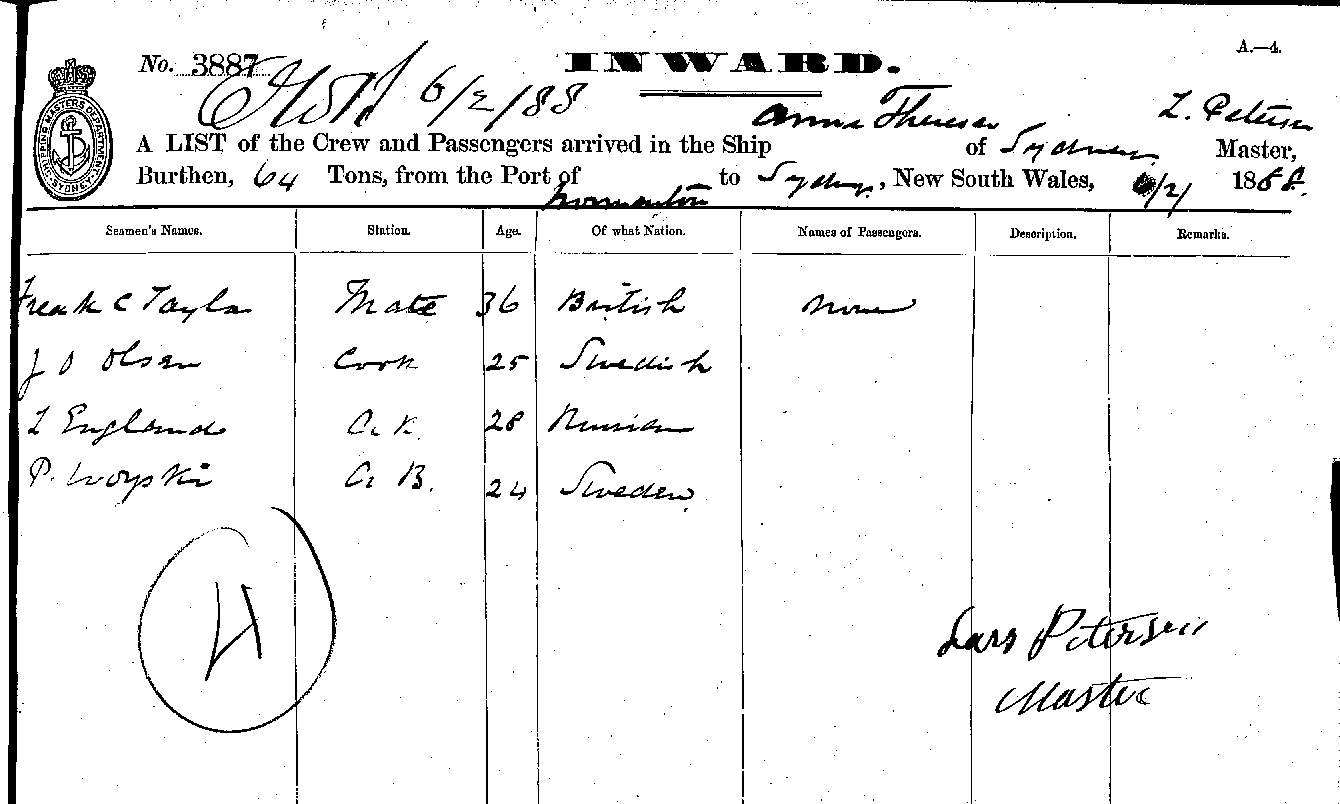 A.—4.
No. 3887 INWARD.
6/2/88
Anna Theresa L. Petersen
A LIST of the Crew and Passengers arrived in the Ship of Sydney Master,
Burthen, 64 Tons, from the Port of Normanton to Sydney, New South Wales, 6/2/ 1888.
SHIPPING MASTERS DEPARTMENT SYDNEY
Seamen's Names. Station. Age. Of what Nation. Names of Passengers. Description. Remarks.
Frank C Taylor Mate 36 British None
J O Olsen Cook 25 Swedish
L England 28 Russian
P. Woyski A B. 24 Sweden
4
Lars Petersen
Master